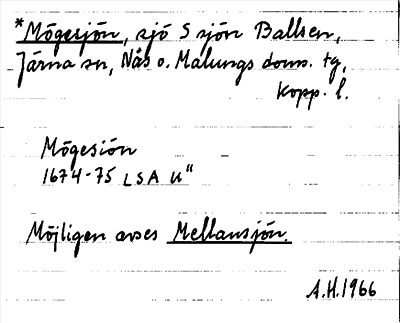 *Mögesjön, sjö S sjön Ballsen,
Järna sn, Nås o. Malungs doms. tg,
Kopp. l.
Mögesiön
1674-75 LSA U"
Möjligen avses Mellansjön.
A.H. 1966